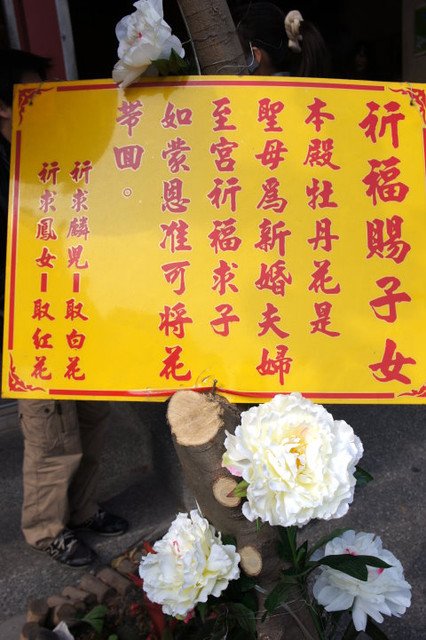 祈福賜子女
本殿牡丹花是
聖母爲新婚夫婦
至宮祈福求子
如蒙恩准可將花
帶回。
祈求麟兒－取白花
祈求鳳女－取紅花